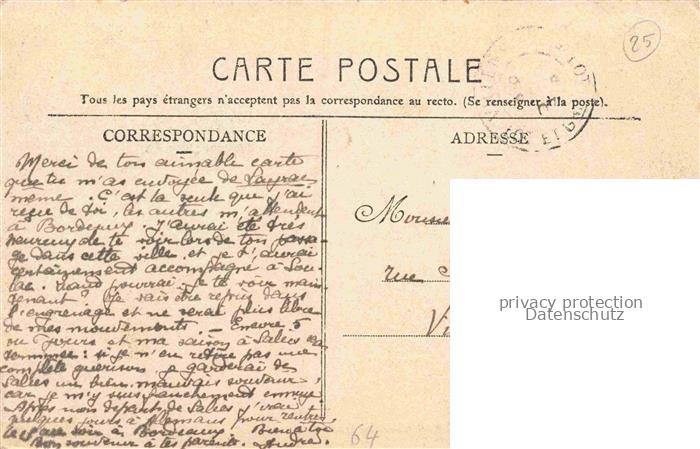 25
CARTE POSTALE
Tous les pays étrangers n'acceptent pas la correspondance au recto. (Se renseigner à la poste).
CORRESPONDANCE
ADRESSE
Merci de ton aimable carte
que tu m'as envoyée de Layrac
même. C'est la seule que j'ai
reçue de toi, les autres m'attendent
à Bordeaux. J'aurai été très
heureux de te voir lors de ton passa-
ge dans cette ville et je t'aurai
certainement accompagné à Sou-
lac. Quand pourrai-je te voir main-
tenant? Je vais être repris dans
l'engrenage et ne serai plus libre
de mes mouvements. - Encore 5
ou 7 jours et ma saison à Salies
terminée: si je n'en retire pas une
complète guérison je garderai de
Salies un bien mauvais souvenir,
car je m'y suis franchement ennuyé
Après mon départ de Salies j'irai
quelques jours à Allemans pour rentrer
le soir à Bordeaux. Bien à toi
Bon souvenir à tes parents. André
rue
64
privacy protection
Datenschutz